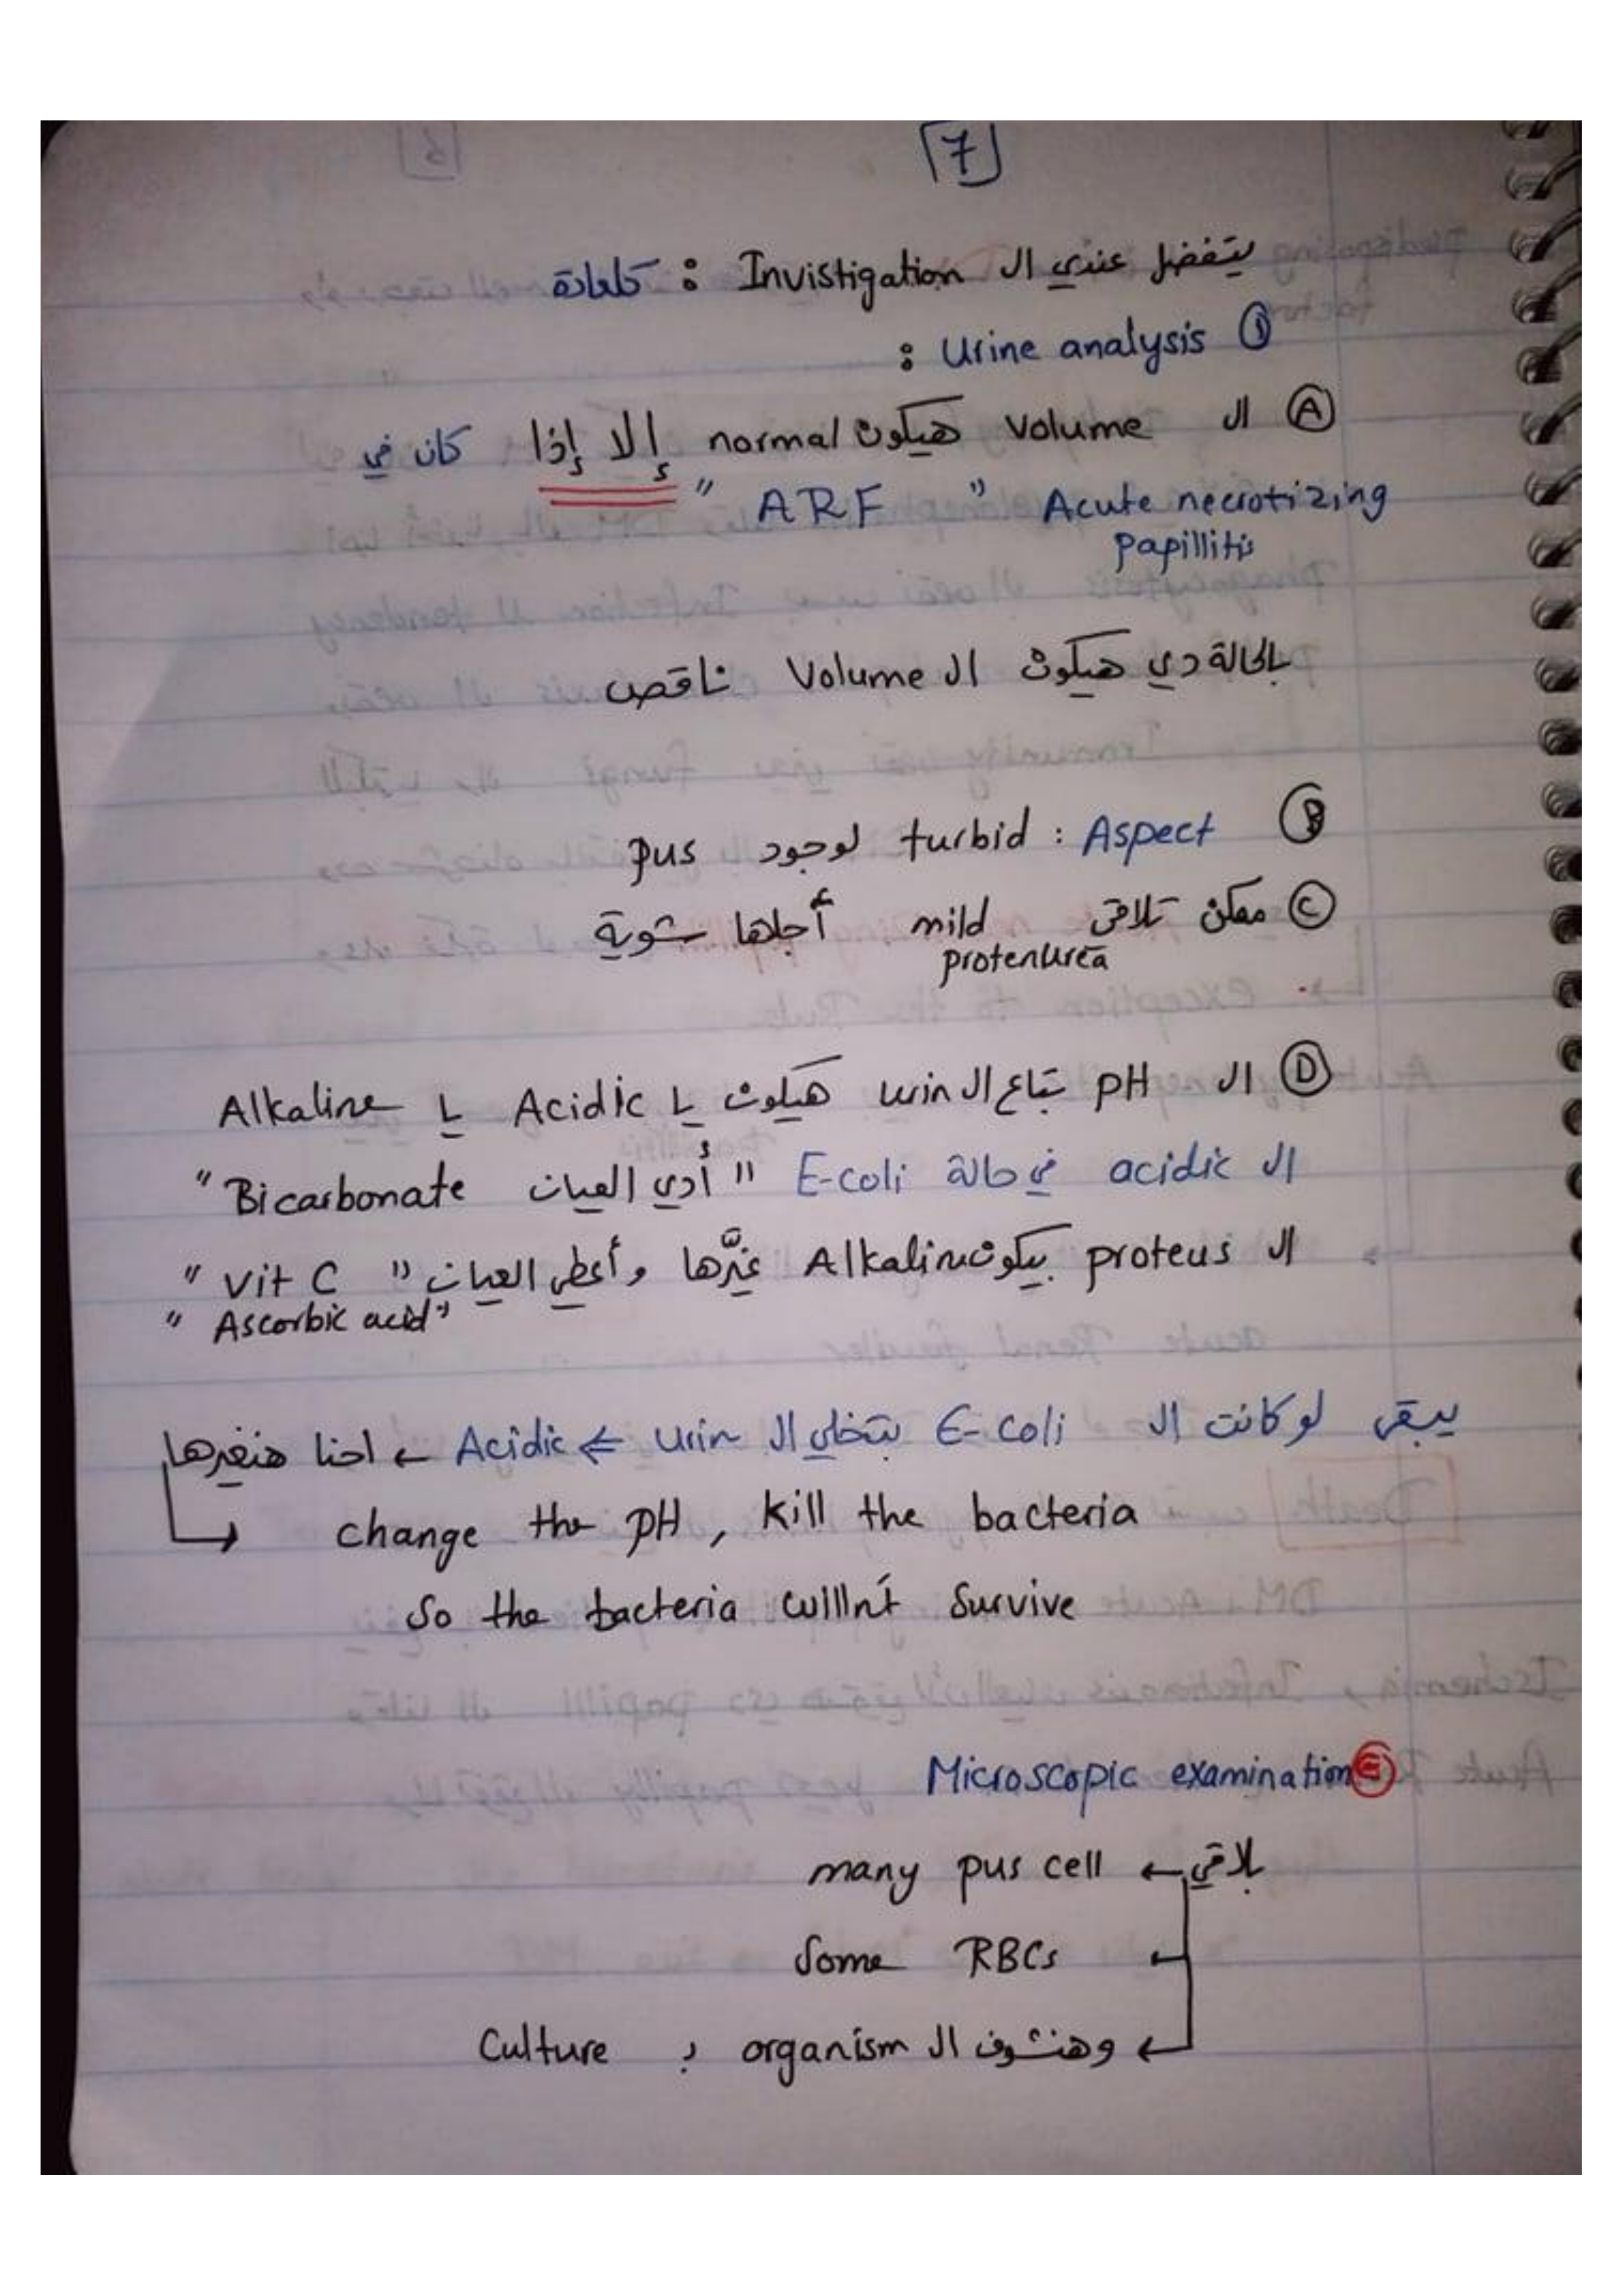 7
يتفضل عندي ال Invistigation : كالعادة
① Urine analysis :
Ⓐ ال Volume هيكون normal إلا إذا كان في
Acute necrotizing papillitis " ARF "
بالحالة دي هيكون ال Volume ناقص
Ⓑ Aspect : turbid لوجود pus
Ⓒ ممكن تلاقى mild protenurea أجلها شوية
Ⓓ ال pH بتاع ال urin هيكون يا Acidic يا Alkaline
ال acidic في حالة E-coli " أدي العيان Bicarbonate "
ال proteus بيكون Alkaline غيَّرها وأعطي العيان " Vit C "
" Ascorbic acid "
يبقى لو كانت ال E-coli بتخلي ال Urin ⇐ Acidic ← احنا هنغيرها
change the pH , kill the bacteria
So the bacteria willn't Survive
Ⓔ Microscopic examination
بلاقي ← many pus cell
Some RBCs
وهنشوف ال organism ب Culture